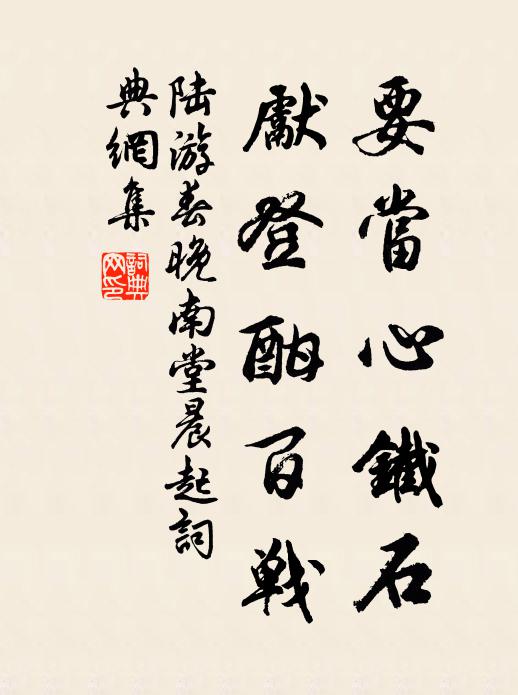 要當心鐵石
獻登酣百戦
陸游春晚南堂晨起詞
典網集
詞典
网印